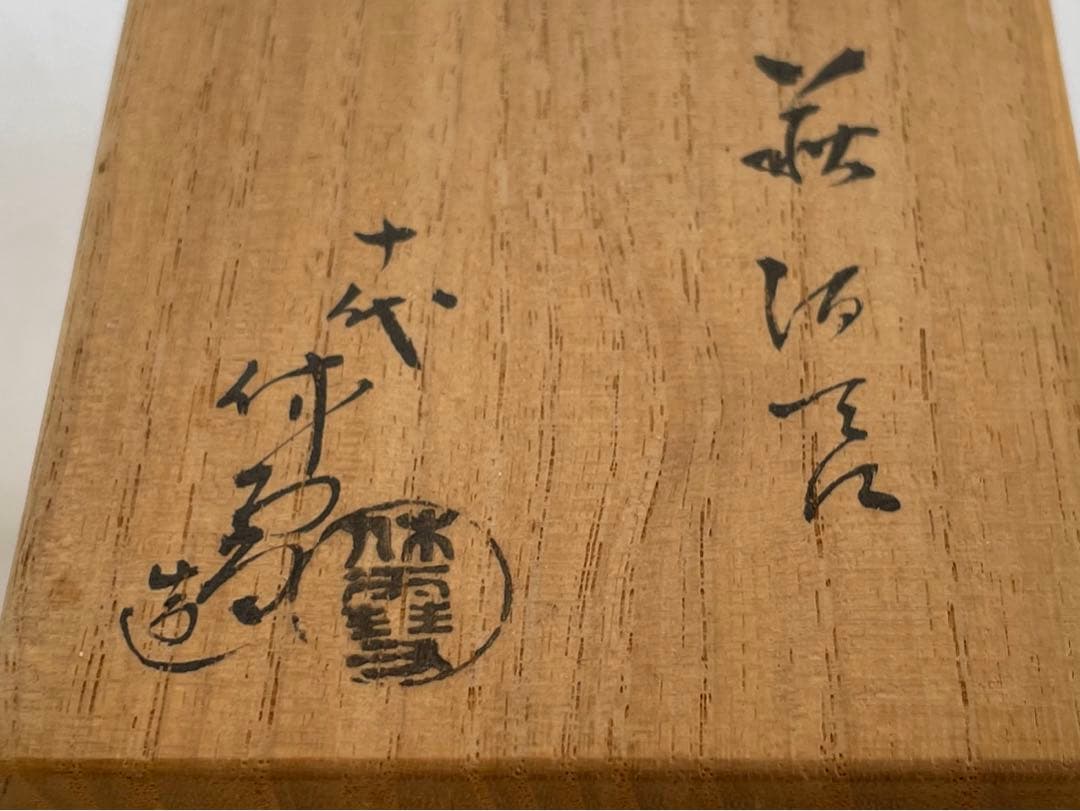 萩酒呑
十代休雪造
休雪